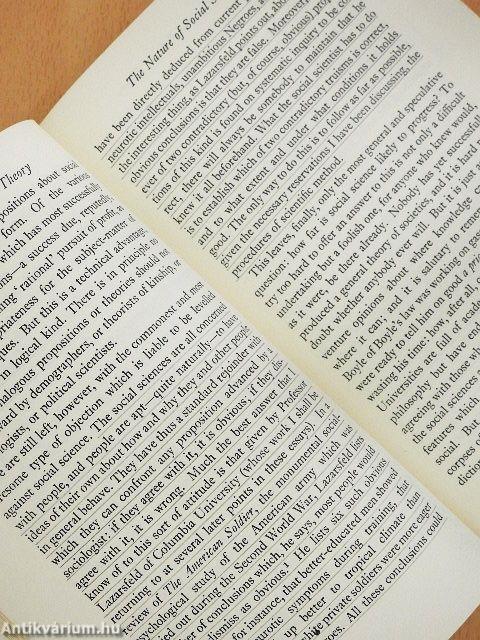 Theory
positions about social
form. Of the various
which has most successfully
ions—a success due, reputedly,
ing 'rational' pursuit of profit, as
opriateness for the subject-matter of
ques. But this is a technical advantage,
in logical kind. There is in principle no
nalogous propositions or theories should not
ward by demographers, or theorists of kinship, or
ologists, or political scientists.
e are still left, however, with the commonest and most
esome type of objection which is liable to be levelled
against social science. The social sciences are all concerned
with people, and people are apt—quite naturally—to have
ideas of their own about how and why they and other people
in general behave. They have thus a standard rejoinder with
which they can confront any proposition advanced by a
sociologist: if they agree with it, it is obvious, if they dis-
agree with it, it is wrong. Much the best answer that I
know of to this sort of attitude is that given by Professor
Lazarsfeld of Columbia University (whose work I shall be
returning to at several later points in these essays). In a
review of The American Soldier, the monumental social-
psychological study of the American army which was
carried out during the Second World War, Lazarsfeld lists
conclusions which, he says, most people would
dismiss as obvious.¹ He lists six such obvious
for instance, that better-educated men showed
neurotic symptoms during training, that
better to tropical climate than
private soldiers were more eager
egroes. All these conclusions could
The Nature of Social S
have been directly deduced from current
neurotic intellectuals, unambitious Negroes, a
the interesting thing, as Lazarsfeld points out, abou
obvious conclusions is that they are false. Moreover,
ever of two contradictory (but, of course, obvious) prop
tions of this kind is found on systematic inquiry to be co
rect, there will always be somebody to maintain that he
knew it all beforehand. What the social scientist has to do
is to establish which of two contradictory truisms is correct,
and to what extent and under what conditions it holds
good. The only way to do this is to follow as far as possible,
given the necessary reservations I have been discussing, the
procedures of scientific method.
This leaves, finally, only the most general and speculative
question: how far is social science likely to progress? To
try too hard to offer an answer to this is not only a difficult
undertaking but a foolish one, for anyone who knew would,
as it were, be there already. Nobody has yet successfull
produced a general theory of societies, and it is har
doubt whether anybody ever will. But it is just a
venture opinions about where knowledge c
where it can, and it is salutary to remem
Boyle of Boyle's law was working on ga
were ready to tell him on good a pri
wasting his time; how, after all,
Universities are full of acade
philosophy but have en
agreeing with those w
the social sciences
features which
social. But
corpses o
diction